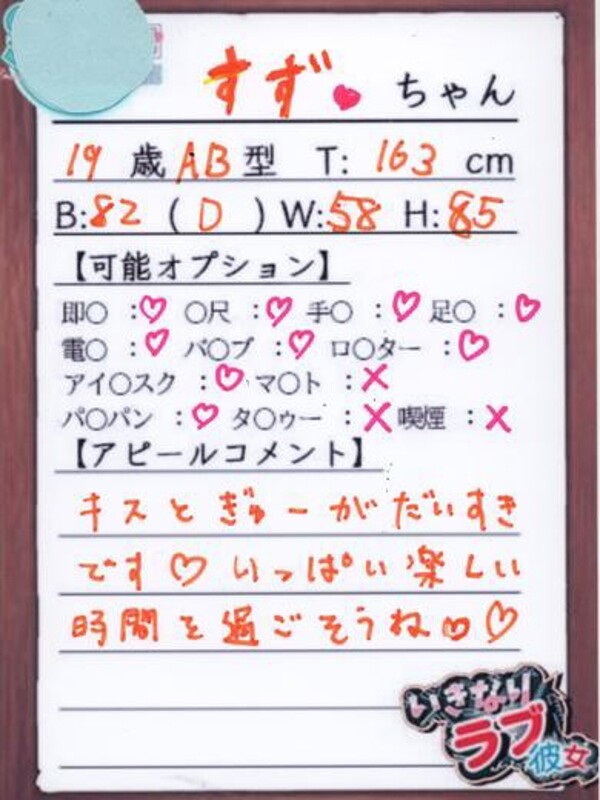 すず♥ ちゃん
19 歳 AB 型 T: 163 cm
B:82 ( D ) W:58 H:85
【可能オプション】
即〇 :♡ 〇尺 :♡ 手〇 :♡ 足〇 :♡
電〇 :♡ バ〇ブ :♡ ロ〇ター :♡
アイ〇スク :♡ マ〇ト :×
パ〇パン :♡ タ〇ゥー :× 喫煙 :×
【アピールコメント】
キスとぎゅーがだいすき
です♡いっぱい楽しい
時間を過ごそうね♡♡
いきなり
ラブ彼女